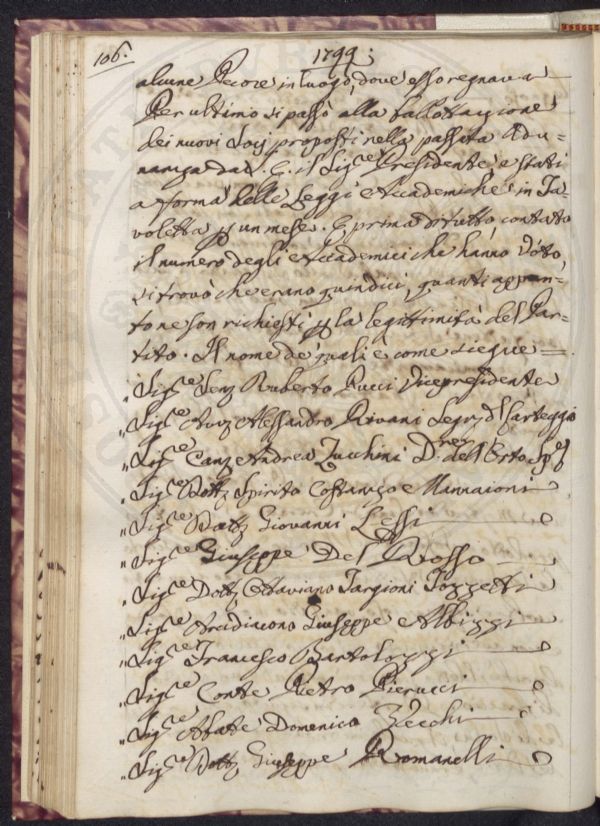 106.
1799:
alcune Pecore in luogo, dove esso regnava
Per ultimo si passò alla ballottazione
dei nuovi Socj proposti nella passata Adu=
nanza dal S. E. il Sig.e Presidente, e stati
a forma delle Leggi Accademiche in Ta=
voletta p un mese. E prima di tutto contato
il numero degli Accademici che hanno Voto,
si trovò che erano quindici, quanti appun=
to ne son richiesti p la legittimità del Par=
tito. Il nome de' quali è come siegue =
„ Sig.e Senz Ruberto Pucci Vicepresidente
„ Sig.e Avvz Alessandro Rivani Segr. d'Carteggio
„ Sig.e Canz Andrea Zucchini D.rer dell'Orto Sp.l
„ Sig.e Dottz Spirito Costanzo Mannaioni
„ Sig.e Dottz Giovanni Lessi
„ Sig.e Giuseppe Del Rosso
„ Sig.e Dottz Ottaviano Targioni Tozzetti
„ Sig.e Arcidiacono Giuseppe Albizzi
„ Sig.e Francesco Bartolozzi
„ Sig.e Conte Pietro Pierucci
„ Sig.e Abate Domenico Zecchi
„ Sig.e Dottz Giuseppe Romanelli